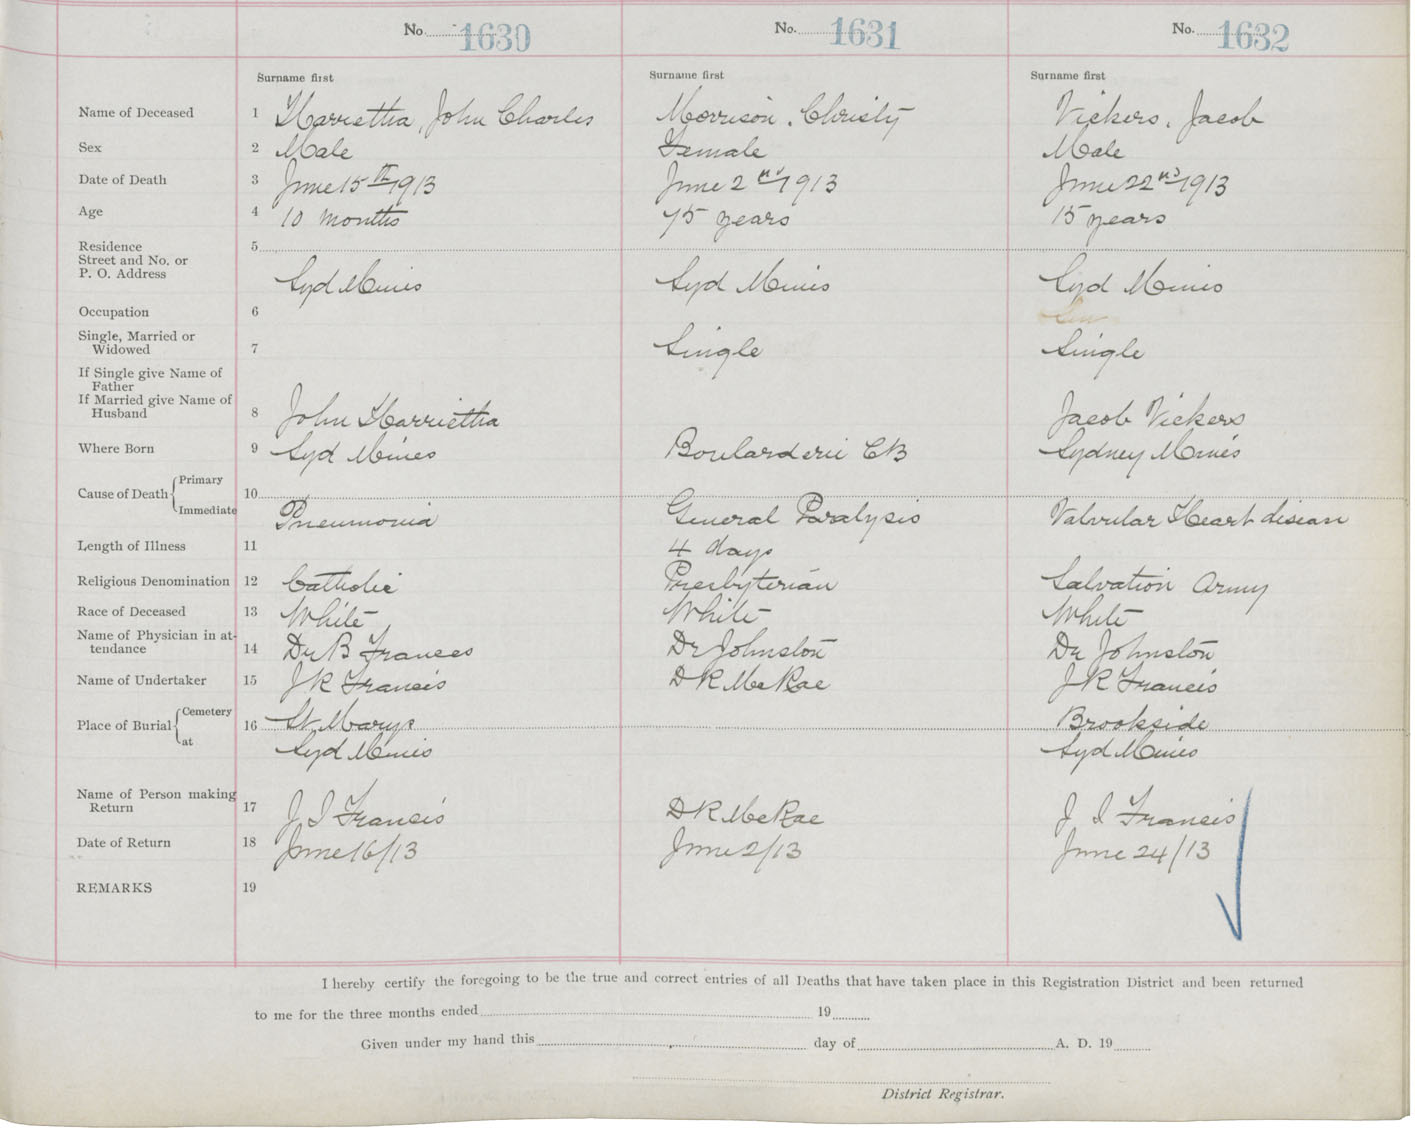 No. 1630 No. 1631 No. 1632
Surname first Surname first Surname first
Name of Deceased 1 Harrietha, John Charles Morrison, Christy Vickers, Jacob
Sex 2 Male Female Male
Date of Death 3 June 15th 1913 June 2nd 1913 June 22nd 1913
Age 4 10 months 75 years 15 years
Residence 5
Street and No. or
P. O. Address Syd Mines Syd Mines Syd Mines
Occupation 6
Single, Married or
Widowed 7 Single Single
If Single give Name of
Father
If Married give Name of
Husband 8 John Harrietha Jacob Vickers
Where Born 9 Syd Mines Boularderie CB Sydney Mines
Cause of Death { Primary 10
Immediate Pneumonia General Paralysis Valvular Heart disease
Length of Illness 11 4 days
Religious Denomination 12 Catholic Presbyterian Salvation Army
Race of Deceased 13 White White White
Name of Physician in at-
tendance 14 Dr B Frances Dr Johnston Dr Johnston
Name of Undertaker 15 J R Francis D R McRae J R Francis
Place of Burial { Cemetery 16 St. Marys Brookside
at Syd Mines Syd Mines
Name of Person making
Return 17 J I Francis D R McRae J I Francis
Date of Return 18 June 16/13 June 2/13 June 24/13
REMARKS 19
I hereby certify the foregoing to be the true and correct entries of all Deaths that have taken place in this Registration District and been returned
to me for the three months ended 19
Given under my hand this day of A. D. 19
District Registrar.